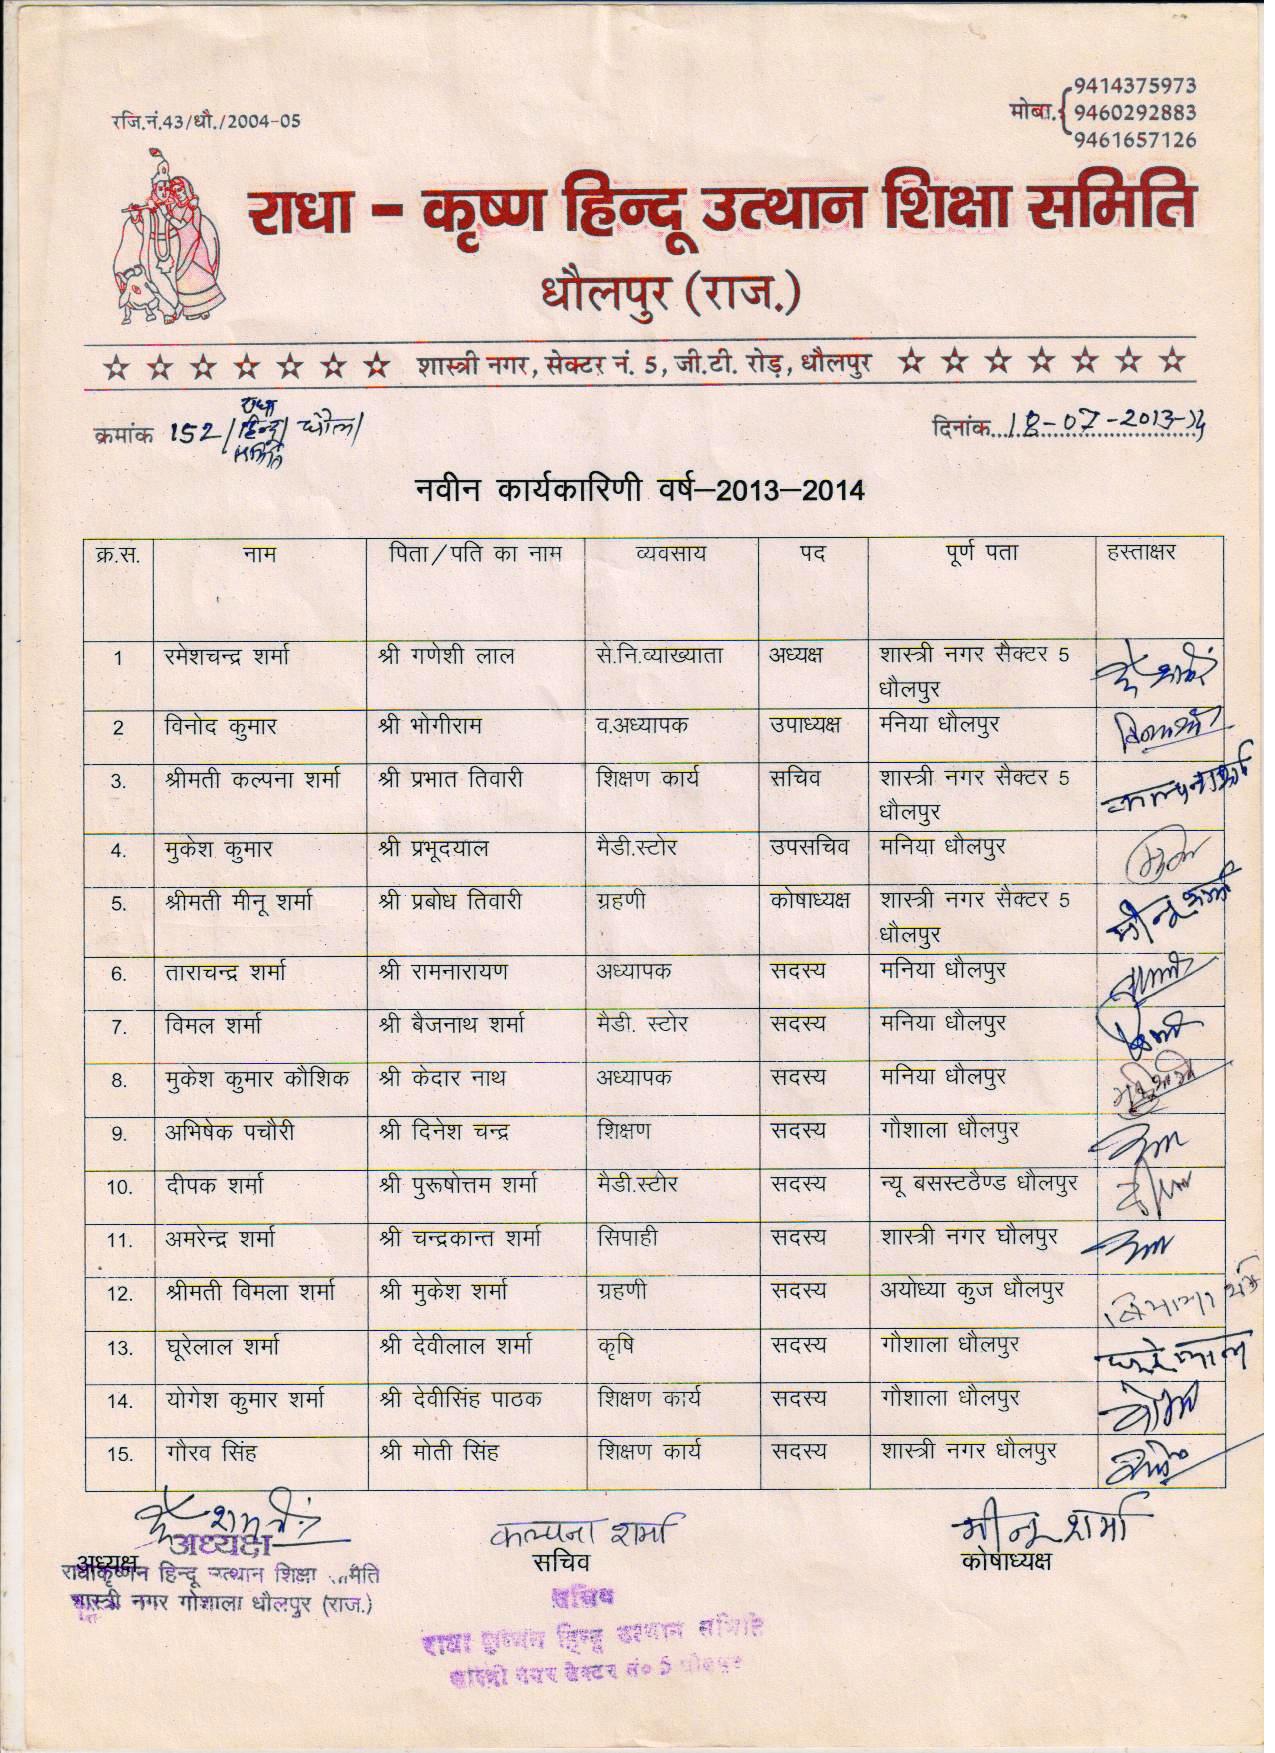 रजि.नं.43/धौ./2004-05
मोबा. 9414375973
9460292883
9461657126
राधा - कृष्ण हिन्दू उत्थान शिक्षा समिति
धौलपुर (राज.)
शास्त्री नगर, सेक्टर नं. 5, जी.टी. रोड़, धौलपुर
क्रमांक 152/राधा हिन्दू समिति/धौल/
दिनांक 18-07-2013-14
नवीन कार्यकारिणी वर्ष–2013–2014
क्र.स. नाम पिता/पति का नाम व्यवसाय पद पूर्ण पता हस्ताक्षर
1 रमेशचन्द्र शर्मा श्री गणेशी लाल से.नि.व्याख्याता अध्यक्ष शास्त्री नगर सैक्टर 5
धौलपुर
2 विनोद कुमार श्री भोगीराम व.अध्यापक उपाध्यक्ष मनिया धौलपुर
3. श्रीमती कल्पना शर्मा श्री प्रभात तिवारी शिक्षण कार्य सचिव शास्त्री नगर सैक्टर 5 कल्पना शर्मा
धौलपुर
4. मुकेश कुमार श्री प्रभूदयाल मैडी.स्टोर उपसचिव मनिया धौलपुर
5. श्रीमती मीनू शर्मा श्री प्रबोध तिवारी ग्रहणी कोषाध्यक्ष शास्त्री नगर सैक्टर 5 मीनू शर्मा
धौलपुर
6. ताराचन्द्र शर्मा श्री रामनारायण अध्यापक सदस्य मनिया धौलपुर
7. विमल शर्मा श्री बैजनाथ शर्मा मैडी. स्टोर सदस्य मनिया धौलपुर
8. मुकेश कुमार कौशिक श्री केदार नाथ अध्यापक सदस्य मनिया धौलपुर
9. अभिषेक पचौरी श्री दिनेश चन्द्र शिक्षण सदस्य गौशाला धौलपुर
10. दीपक शर्मा श्री पुरूषोत्तम शर्मा मैडी.स्टोर सदस्य न्यू बसस्टठैण्ड धौलपुर
11. अमरेन्द्र शर्मा श्री चन्द्रकान्त शर्मा सिपाही सदस्य शास्त्री नगर घौलपुर
12. श्रीमती विमला शर्मा श्री मुकेश शर्मा ग्रहणी सदस्य अयोध्या कुज धौलपुर
13. घूरेलाल शर्मा श्री देवीलाल शर्मा कृषि सदस्य गौशाला धौलपुर घूरेलाल
14. योगेश कुमार शर्मा श्री देवीसिंह पाठक शिक्षण कार्य सदस्य गौशाला धौलपुर
15. गौरव सिंह श्री मोती सिंह शिक्षण कार्य सदस्य शास्त्री नगर धौलपुर
कल्पना शर्मा
मीनू शर्मा
अध्यक्ष
अध्यक्ष
सचिव
कोषाध्यक्ष
राधाकृष्णन हिन्दू उत्थान शिक्षा समिति
शास्त्री नगर गोशाला धौलपुर (राज.)
सचिव
राधा कृष्णन हिन्दू उत्थान समिति
शास्त्री नगर सेक्टर नं० 5 धौलपुर